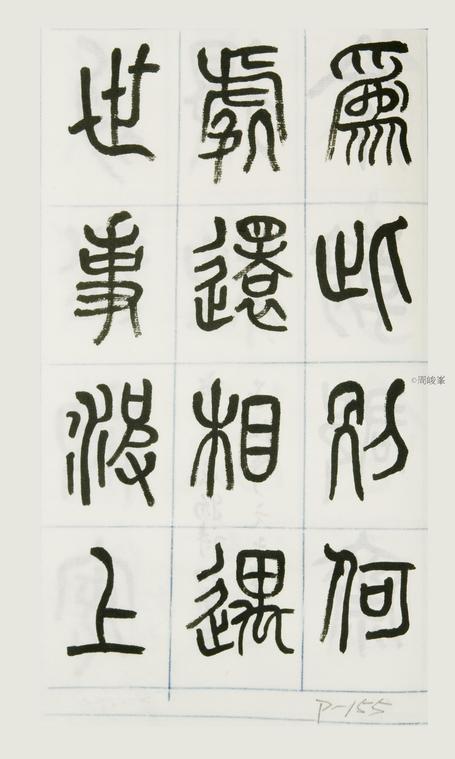 為此別何
處還相遇
世事波上
©周峻峯
P-155